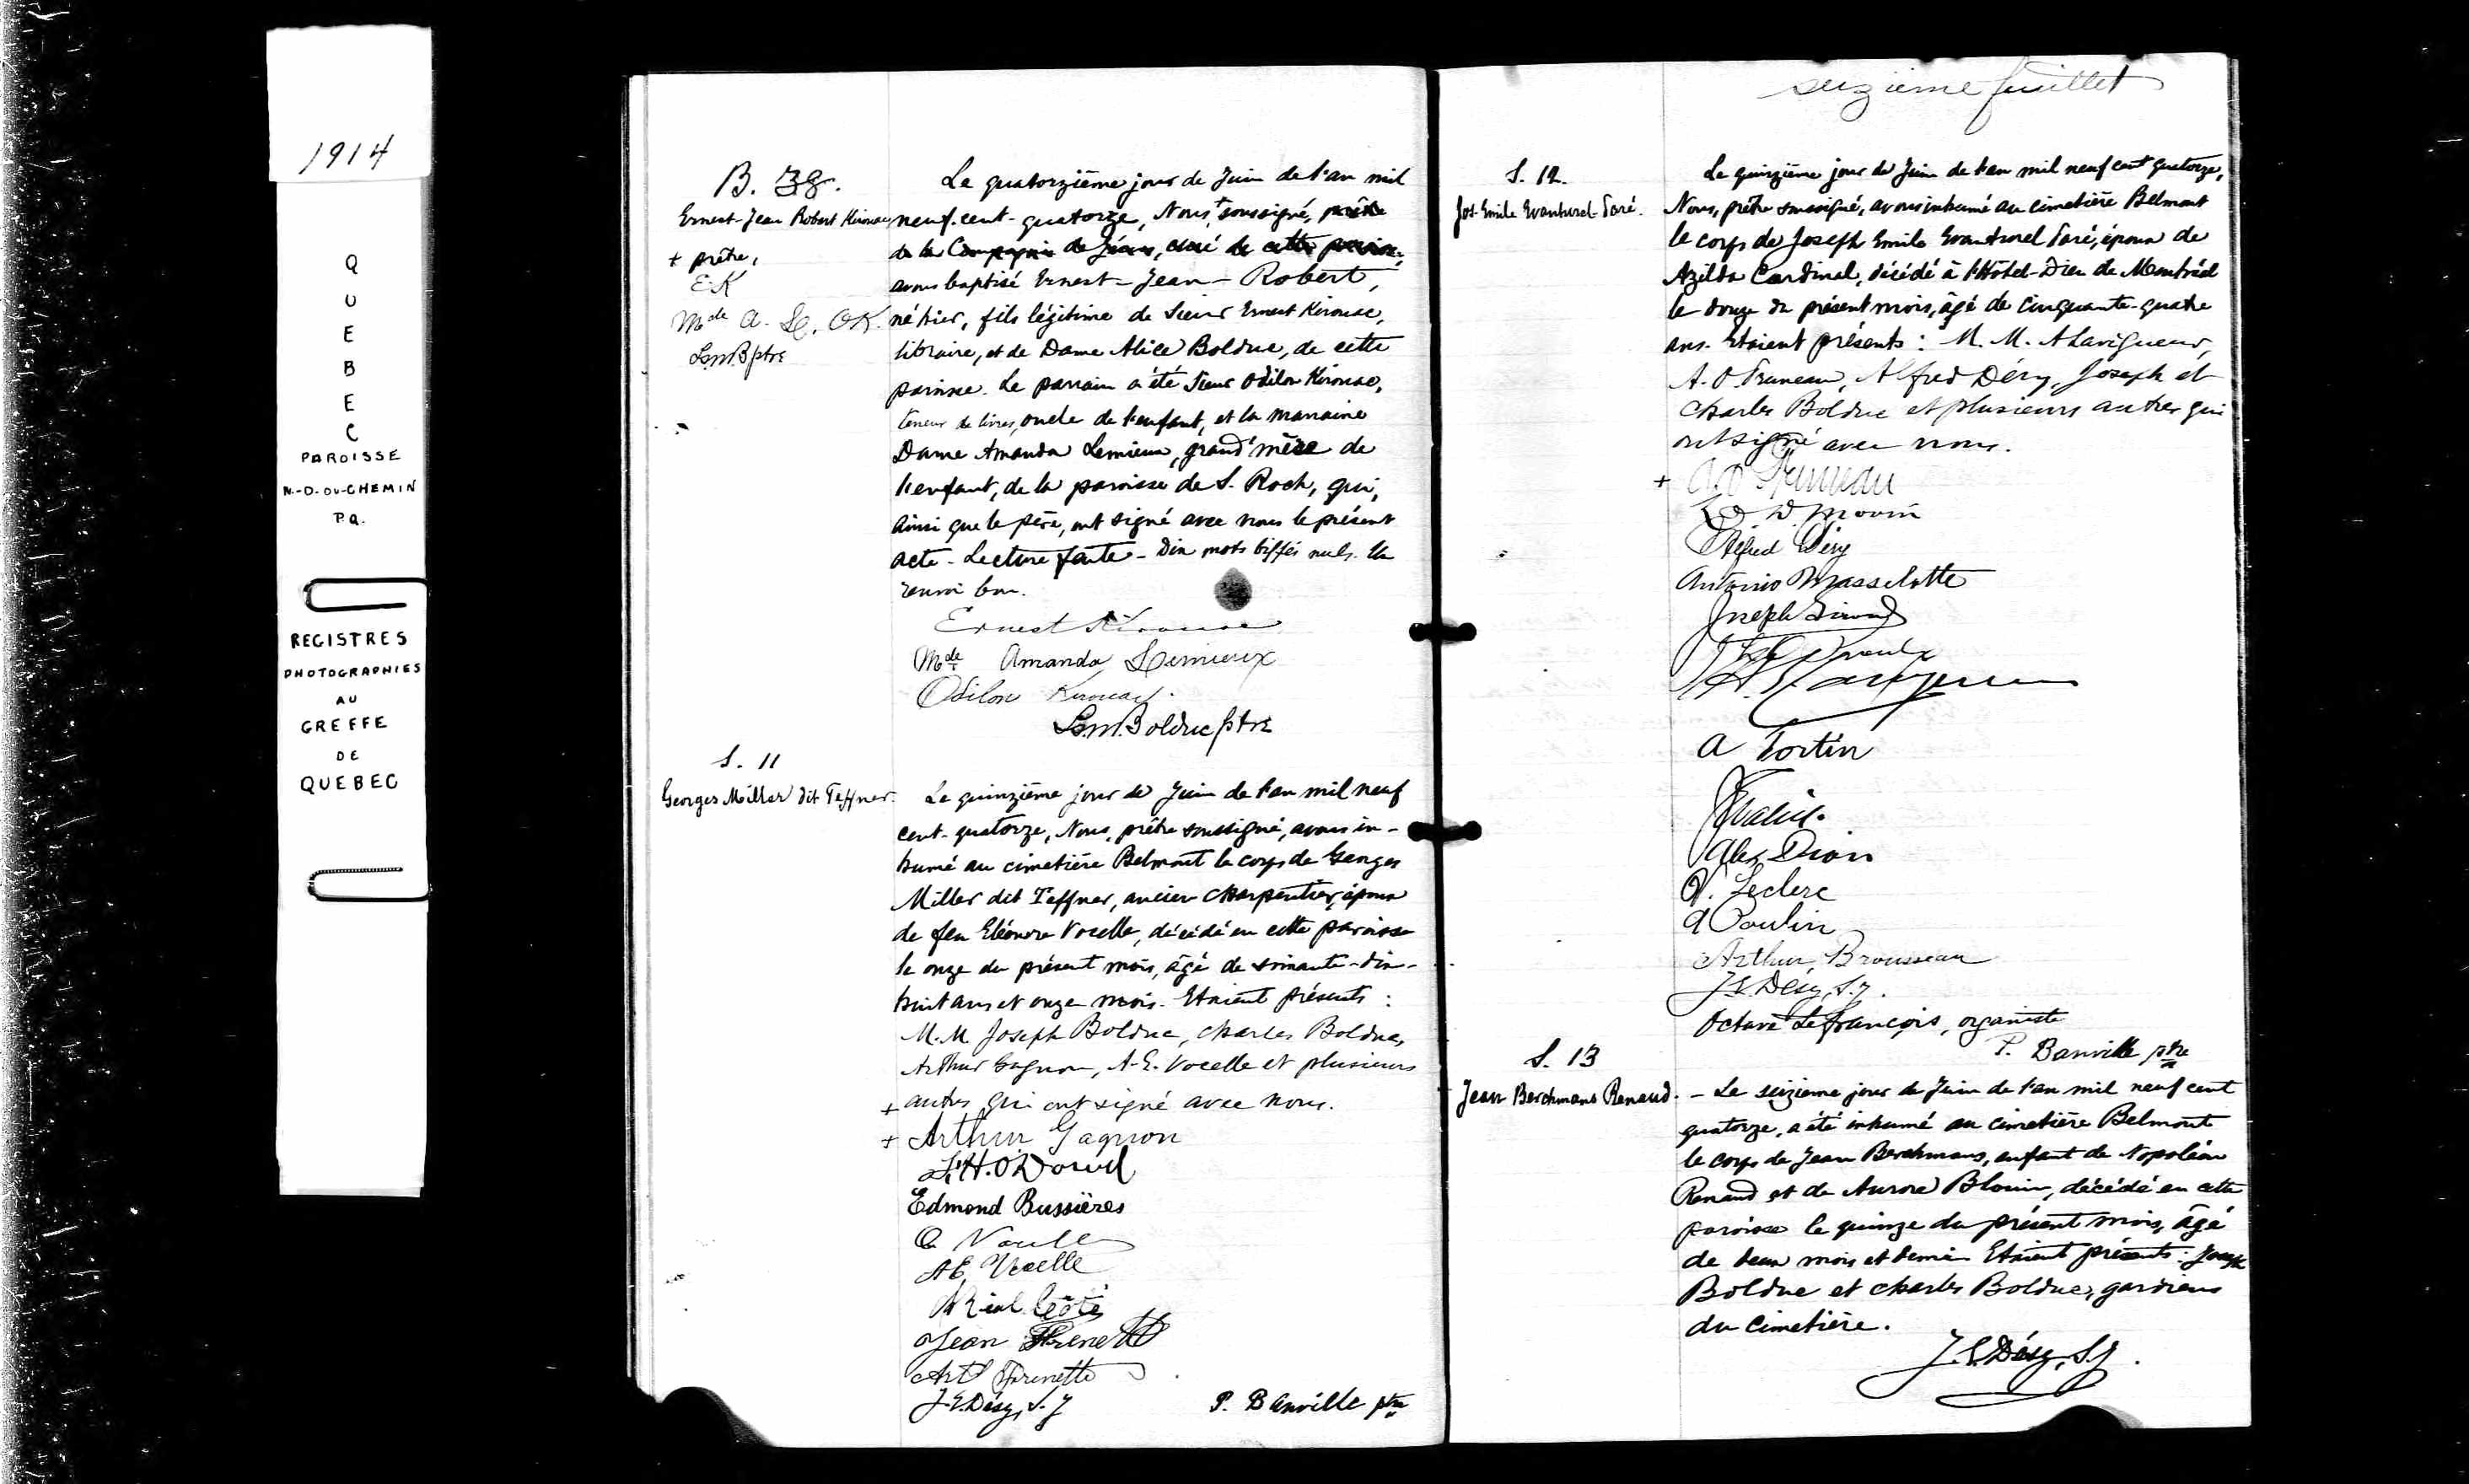 1914
Q
U
E
B
E
C
PAROISSE
N.-D.-DU-CHEMIN
P.Q.
REGISTRES
PHOTOGRAPHIES
AU
GREFFE
DE
QUEBEC
B. 38.
Ernest-Jean Robert Kirouac
+ prêtre,
E.K
Mde A. L. O.K.
L.m.B ptre
Le quatorzième jour de Juin de l'an mil
neuf-cent-quatorze, Nous + soussigné, prêtre
de la Compagnie de Jésus, curé de cette paroisse,
avons baptisé Ernest-Jean-Robert,
né hier, fils légitime de Sieur Ernest Kirouac,
libraire, et de Dame Alice Bolduc, de cette
paroisse. Le parrain a été Sieur Odilon Kirouac,
teneur de livres, oncle de l'enfant, et la marraine
Dame Amanda Lemieux, grand'mère de
l'enfant, de la paroisse de S. Roch, qui,
ainsi que le père, ont signé avec nous le présent
acte - Lecture faite - Dix mots biffés nuls. Un
renvoi bon.
Ernest Kirouac
Mde Amanda Lemieux
Odilon Kirouac
L.m.Bolduc ptre
S. 11
Georges Miller dit Teffner.
Le quinzième jour de Juin de l'an mil neuf
cent-quatorze, Nous, prêtre soussigné, avons in-
humé au cimetière Belmont le corps de Georges
Miller dit Teffner, ancien charpentier, époux
de feu Eléonore Vocelle, décédé en cette paroisse
le onze du présent mois, âgé de soixante-dix-
huit ans et onze mois. Etaient présents :
M.M Joseph Bolduc, Charles Bolduc,
Arthur Gagnon, A-E. Vocelle et plusieurs
+ autres qui ont signé avec nous.
+ Arthur Gagnon
Edmond Bussières
A E. Vocelle
Côté
Jean Frenette
Art Frenette
J.E.Désy, S.J
P. Banville ptre
seizième feuillet
S. 12.
Jos-Emile Evanturel-Paré.
Le quinzième jour de Juin de l'an mil neuf cent quatorze,
Nous, prêtre soussigné, avons inhumé au cimetière Belmont
le corps de Joseph Emile Evanturel Paré, époux de
Azilda Cardinal, décédé à l'Hôtel-Dieu de Montréal
le douze du présent mois, âgé de cinquante-quatre
ans. Etaient présents : M. M. A Lavigueur,
A. O. Pruneau, Alfred Déry, Joseph et
Charles Bolduc et plusieurs autres qui
ont signé avec nous.
+ A.O Pruneau
Morin
Alfred Déry
Antonio Masselotte
Joseph
A Fortin
Alex Dion
Leclerc
A Poulin
Arthur Brousseau
J.E.Désy, S.J.
Octave Lefrançois, organiste
P. Banville ptre
S. 13
Jean Berchmans Renaud.
- Le seizième jour de Juin de l'an mil neuf cent
quatorze, a été inhumé au cimetière Belmont
le corps de Jean Berchmans, enfant de Napoléon
Renaud et de Aurore Blouin, décédé en cette
paroisse le quinze du présent mois, âgé
de deux mois et demi. Etaient présents : Joseph
Bolduc et Charles Bolduc, gardiens
du cimetière.
J.E.Désy, S.J.